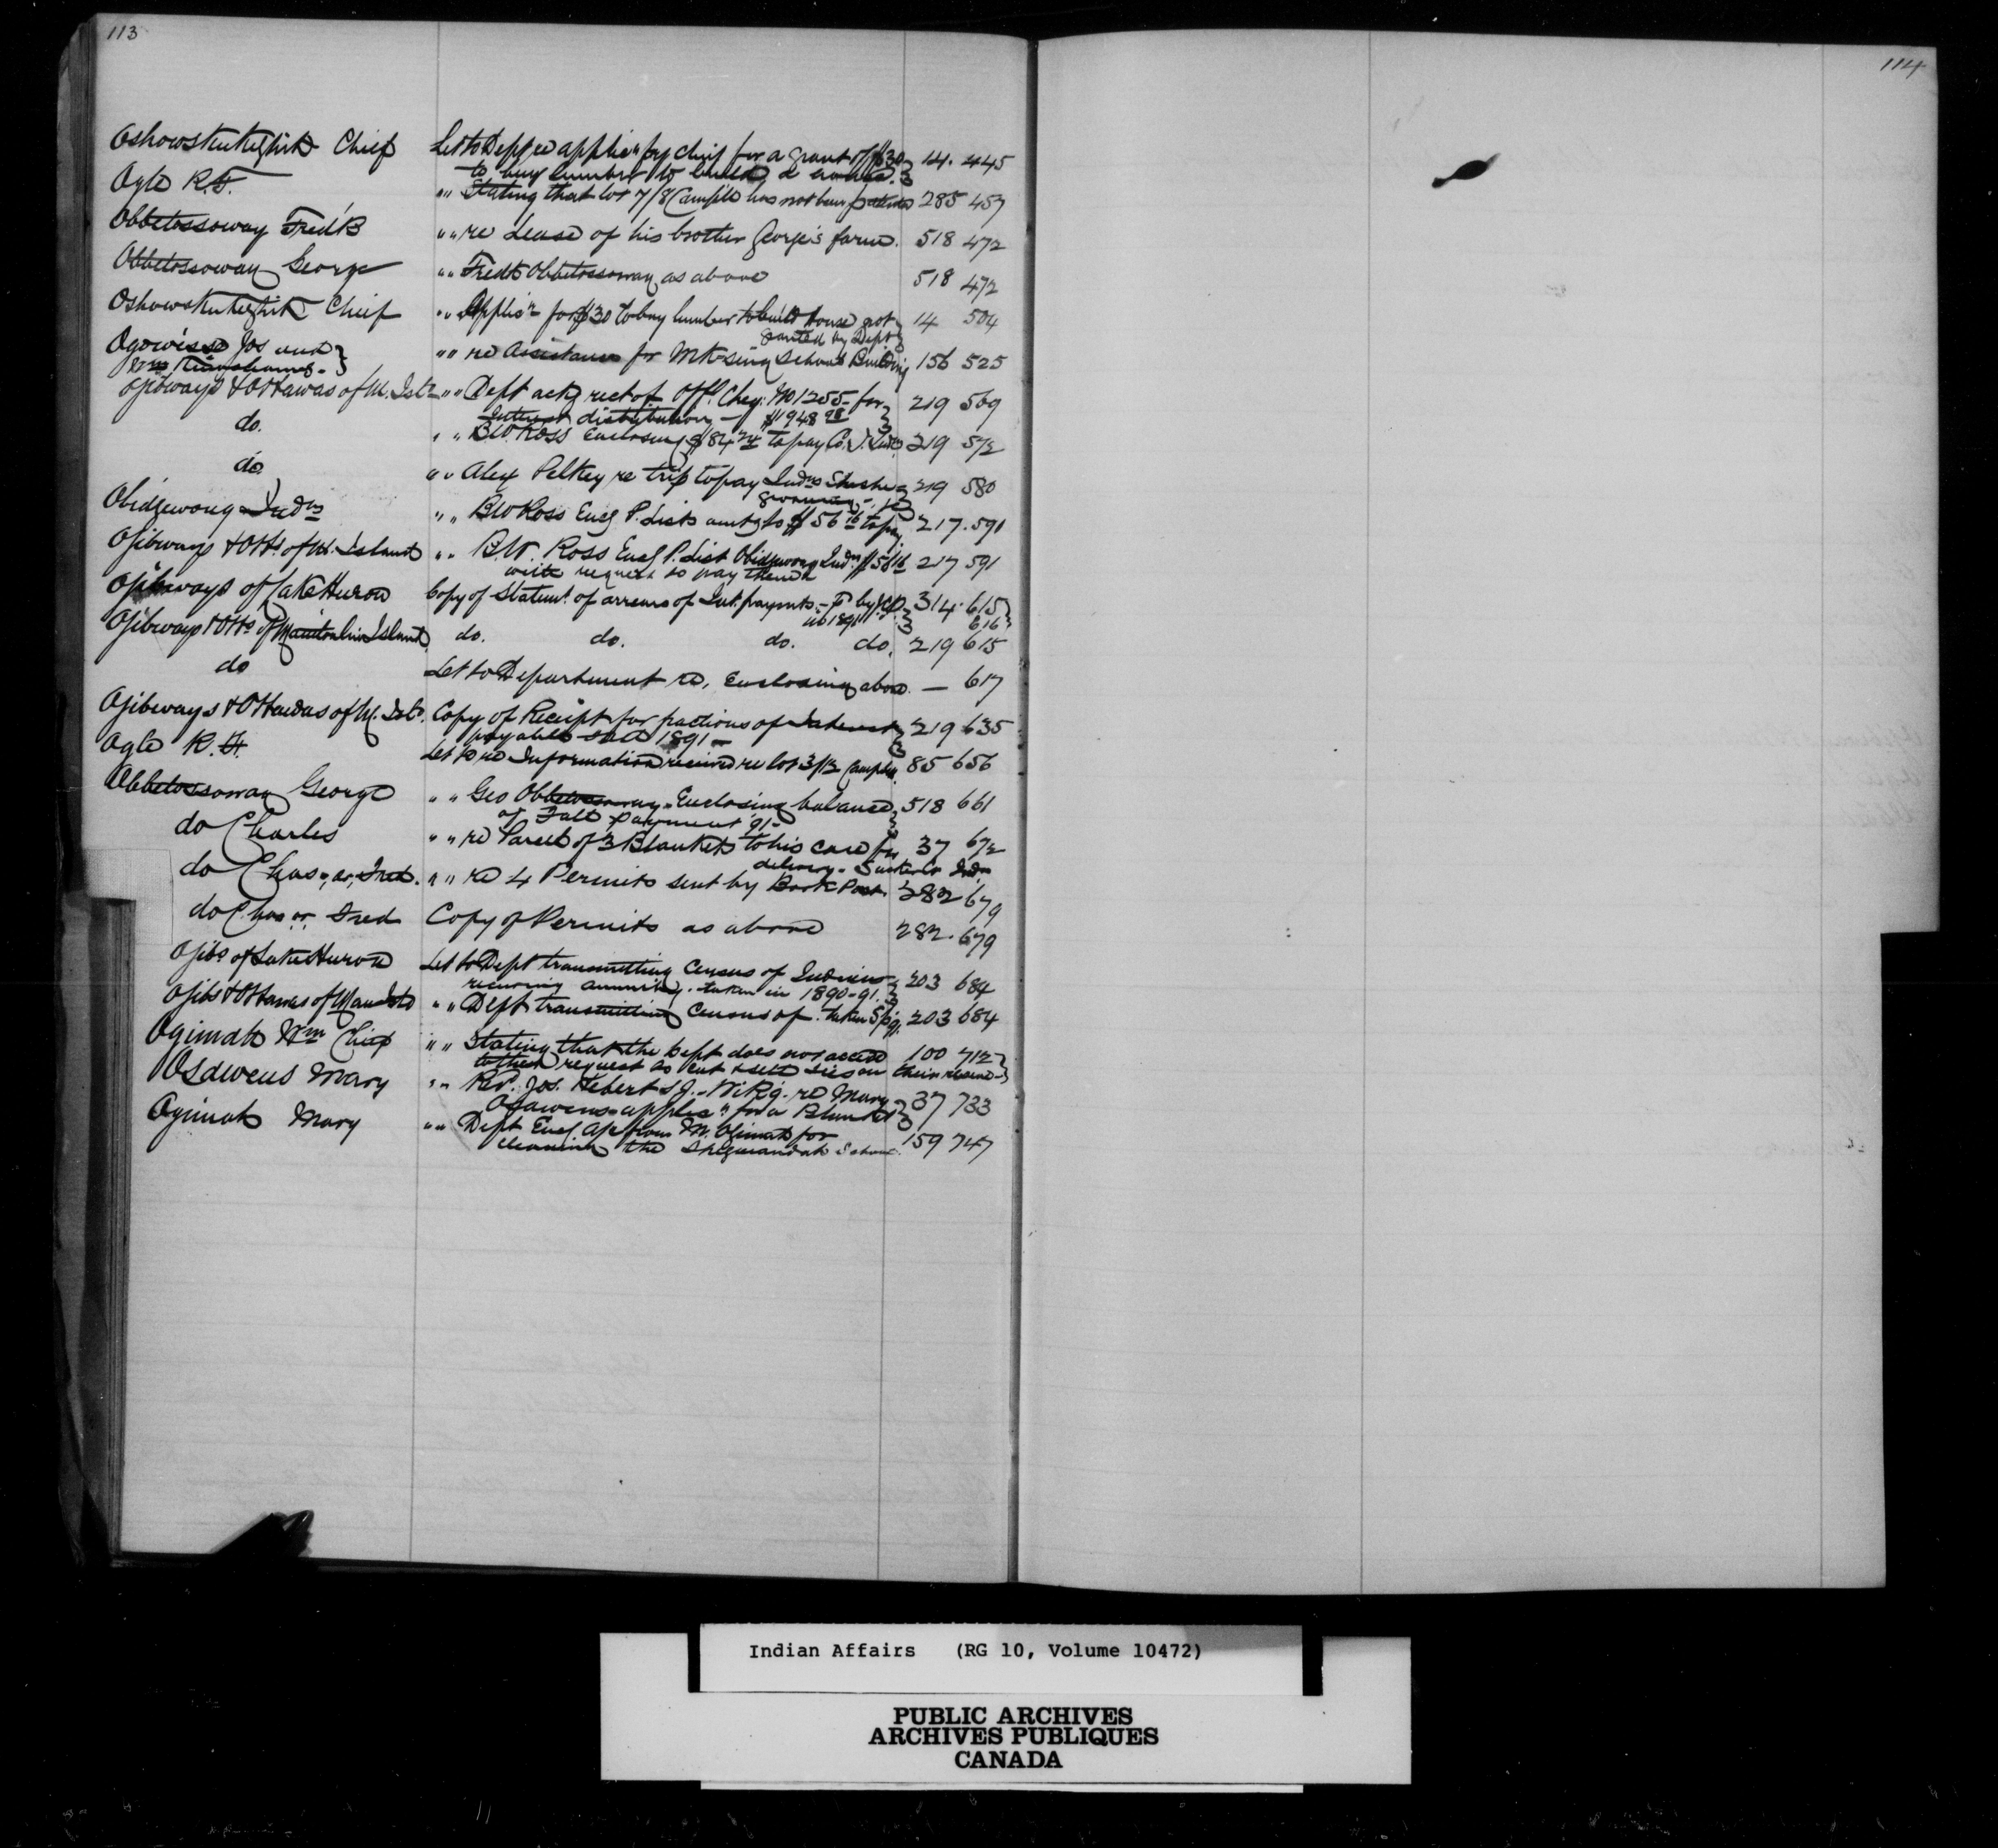 113
114
Oshowskukezhik Chief Let to Dept re applic'n by chief for a grant of $30 14. 445
to buy lumber to build a house.
Ogle R.G. "" Stating that lot 7/8 Campb'l has not been patented 285 457
Obbetossoway Fred'k "" re Lease of his brother George's farm. 518 472
Obbetossoway George "" Fredk Obbetossoway as above 518 472
Oshowskukezhik Chief "" Applic'n for $30 to buy lumber to build house not 14 504
granted by Dept
Ogowisse Jos and "" re Assistance for Mksing School Building 156 525
Ojibways & Ottawas of M. Isl'd "" Dept ackg rect of Offl. Cheq: No 1255 for 219 569
Interest distribution – $1948 98
do. "" BW Ross Enclosing $184 74 to pay C. I. Inds 219 572
do. "" Alex Pelkey re trip to pay Indns Sheshe- 219 580
gwaning
Obidgewong Indns "" BW Ross Encl P. Lists amtg to $56 16 to pay 217. 591
Ojibways & Otts. of M. Island "" B.W. Ross Encl P. List Obidgewong Indns $56 16 217 591
with request to pay them
Ojibways of Lake Huron Copy of Statem't of arrears of Int. payments 314. 615
1891 616
Ojibways & Otts of Manitoulin Island do. do. do. do. 219 615
do Let to Department re, Enclosing above. — 617
Ojibways & Ottawas of M. Isld. Copy of Receipt for fractions of Interest 219 635
payable 1891 –
Ogle R. G. Let to re Information received re lot 3/12 Campbell 85 656
Obbetossoway George "" Geo Obbetossoway Enclosing balance 518 661
of Fall payment 91 –
do Charles "" re Parcel of 3 Blankets to his care for 37 672
delivery – Sucker Cr Indn
do Chas, or, Fred. "" re 4 Permits sent by Book Post. 282 679
do Chas or Fred Copy of Permits as above 282. 679
Ojibs of Lake Huron Let to Dept transmitting Census of Indians 203 684
receiving annuity. taken in 1890-91.
Ojibs & Ottawas of Man Isld "" Dept transmitting Census of. taken Spg. 203 684
Ogimah Wm Chief "" Stating that the Dept does not accede 100 712
to their request to cut & sell ties on their reserve –
Osawens Mary "" Rev. Jos. Hebert S.J. – Wik'g. re Mary 37 733
Osawens applic'n for a Blanket
Ogimah Mary "" Dept Encl a/c from M. Ogimah for 159 747
cleaning the Shegwandah School.
Indian Affairs (RG 10, Volume 10472)
PUBLIC ARCHIVES
ARCHIVES PUBLIQUES
CANADA